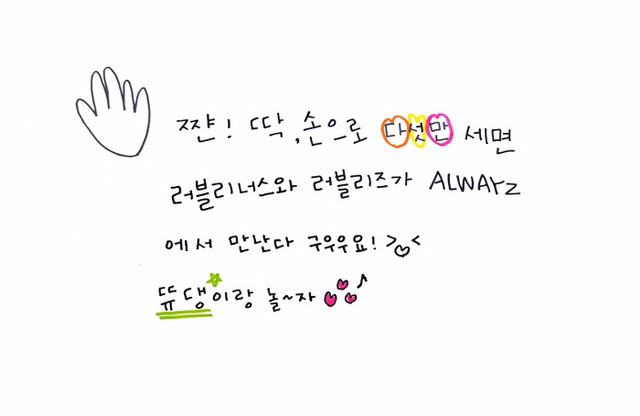 쨘! 딱, 손으로 다섯만 세면
러블리너스와 러블리즈가 ALWAYz
에서 만난다 구우우요! >♡<
뜌댕이랑 놀~자 ♪